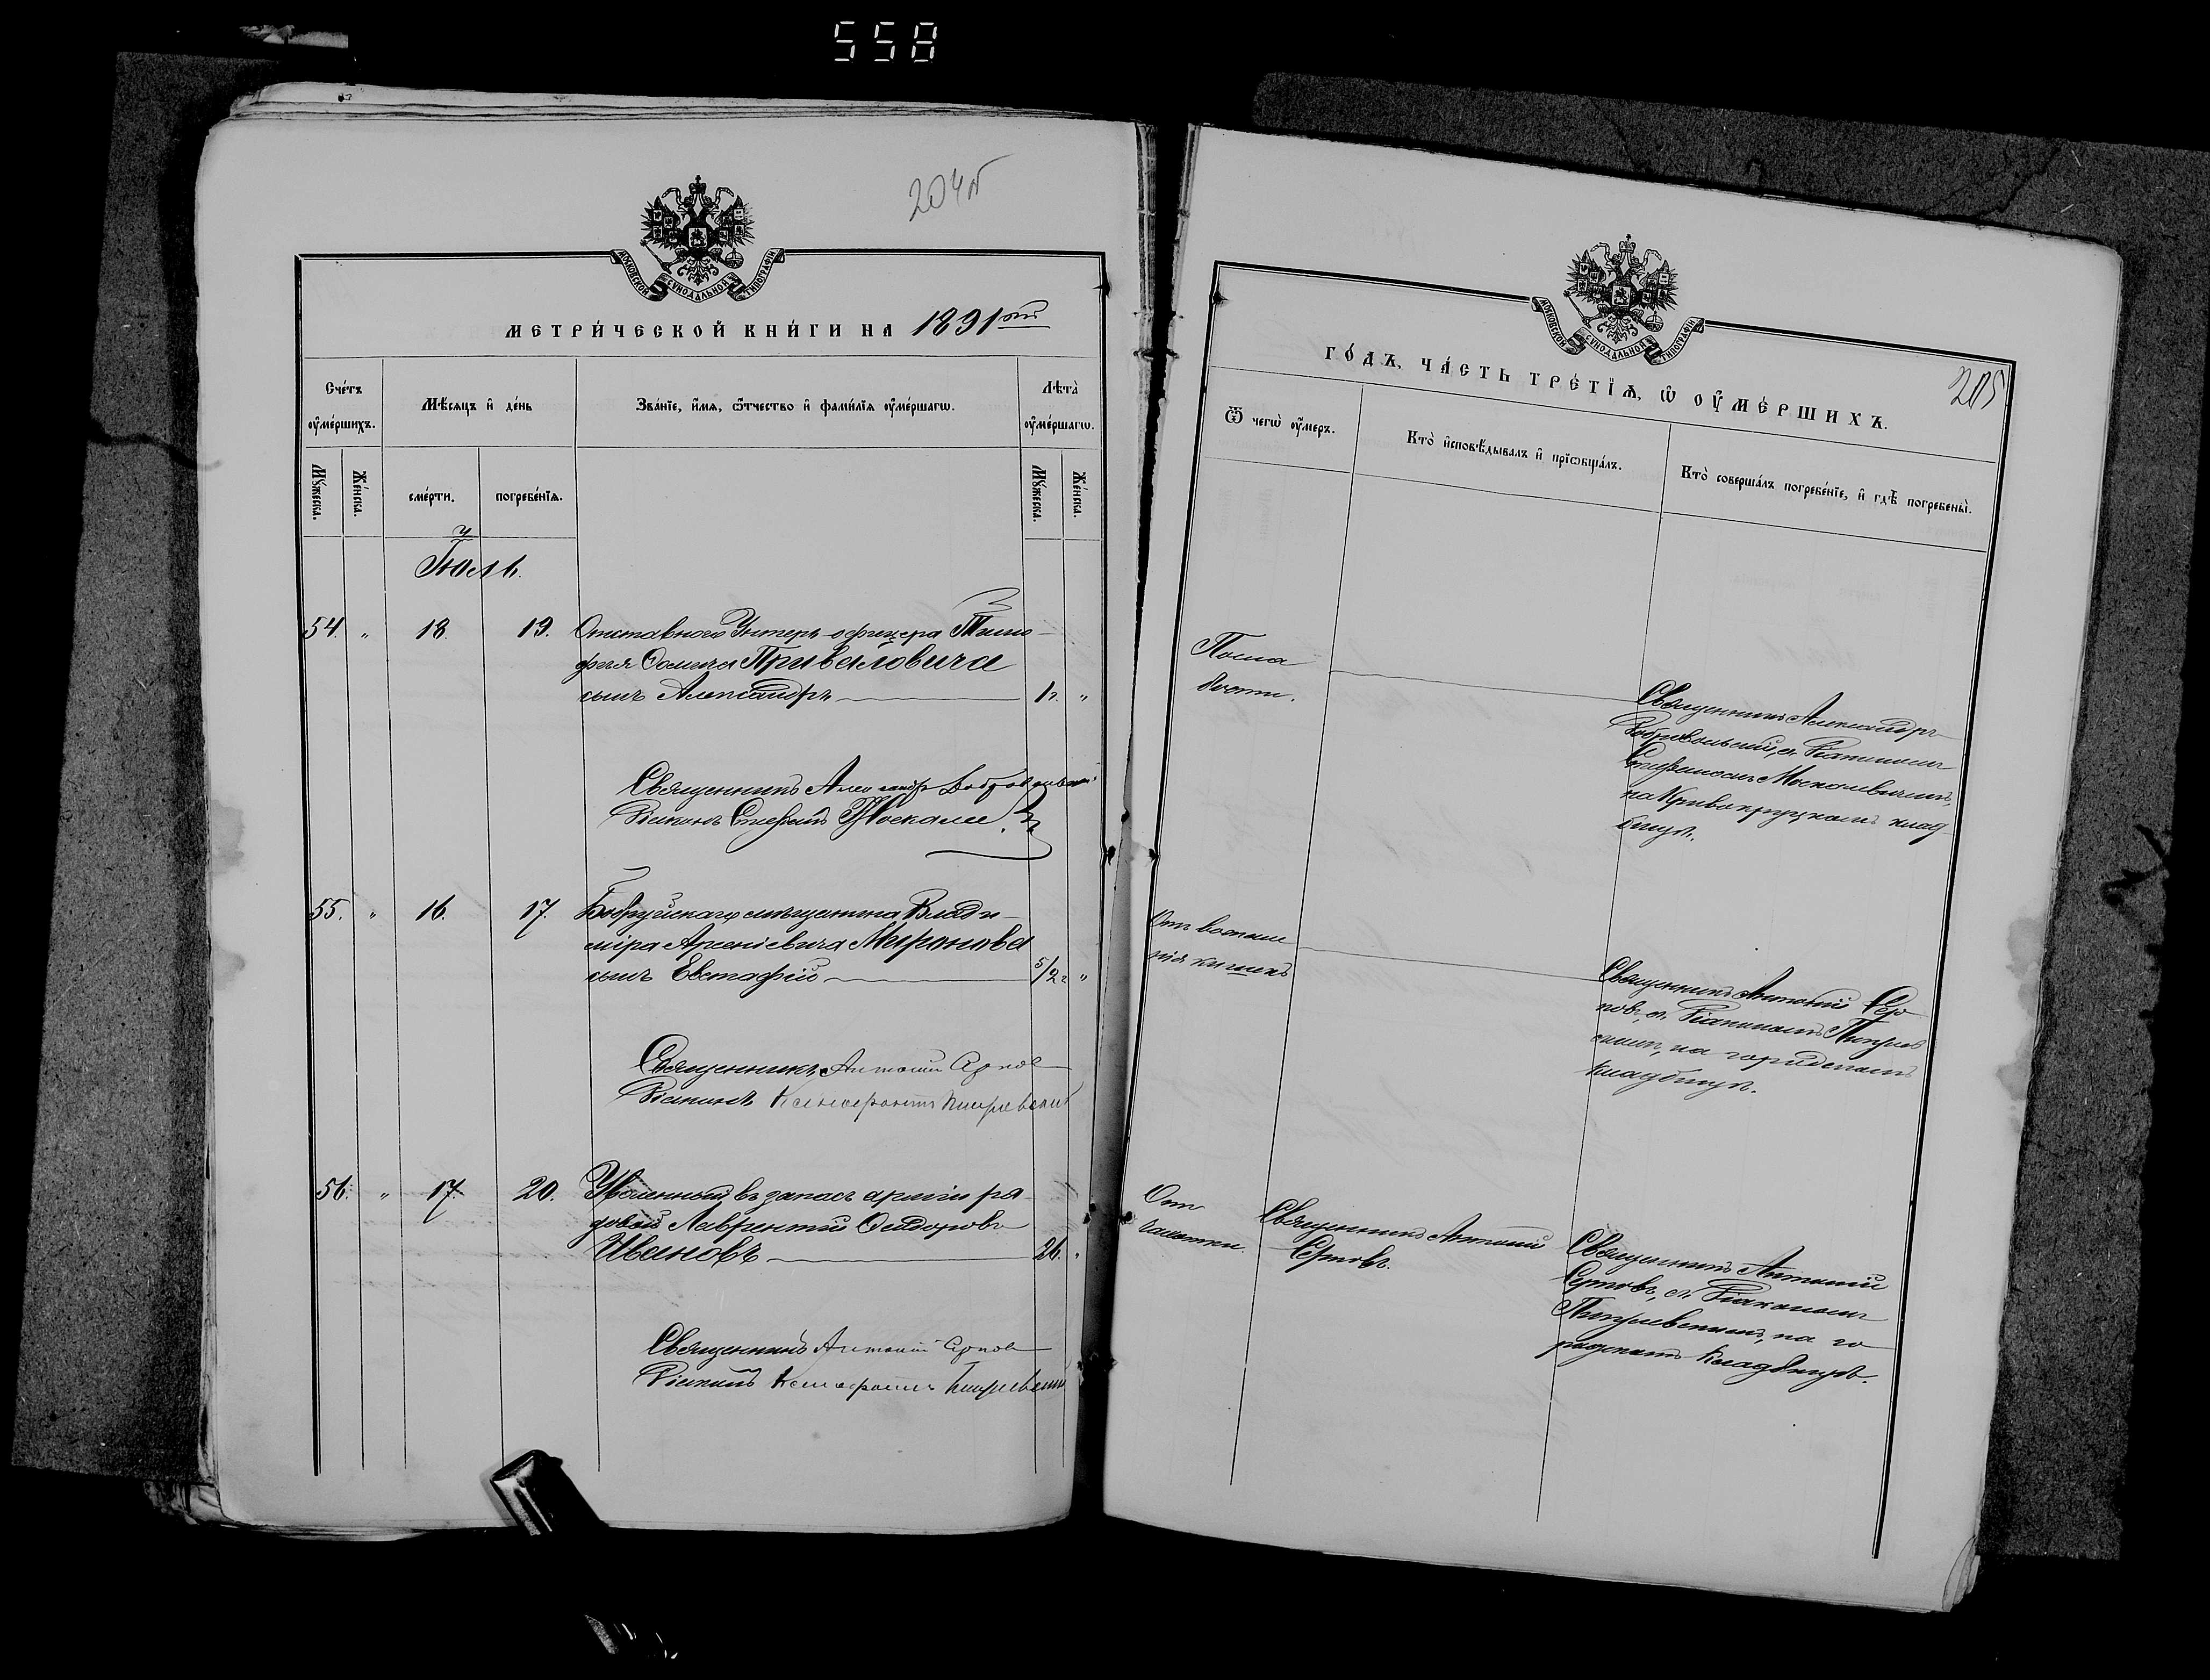 558
204 об
МОСКОВСКОЙ СѴНОДАЛЬНОЙ ТИПОГРАФІИ
МЕТРИ́ЧЕСКОЙ КНИ́ГИ НА 1891ый
Сче́тъ ᲂу҆ме́ршихъ.
Мѣ́сяцъ и҆ де́нь
Зва́нїе, и҆́мѧ, ѻ҆́тчество и҆ фами́лїѧ ᲂу҆ме́ршагѡ.
Лѣ́та ᲂу҆ме́ршагѡ.
Мꙋ́жеска.
Же́нска.
сме́рти.
погребе́нїѧ.
Мꙋ́жеска.
Же́нска.
Іюль.
54. " 18. 19. Отставного Унтеръ-офицера Тимо-
фея Ѳомича Приваловича
сынъ Александръ 1 г. "
Священникъ Александръ Добровольскій
Діаконъ Стефанъ Москалев.
55. " 16. 17. Бобруйскаго мѣщанина Влади-
міра Арсеніевича Миронова
сынъ Евстафій 5/2 г "
Священникъ Антоній Сѣрковъ
Діаконъ Ксенофонтъ
56. " 17. 20. Уволенный въ запасъ арміи ря-
довой Лаврентій Ѳедоровъ
Ивановъ 26. "
Священникъ Антоній
Діаконъ Ксенофонтъ
МОСКОВСКОЙ СѴНОДАЛЬНОЙ ТИПОГРАФІИ
ГО́ДЪ, ЧА́СТЬ ТРЕ́ТЇѦ, Ѡ҆ ОУ҆МЕ́РШИХЪ.
205
Ѿ чегѡ̀ ᲂу҆́меръ.
Кто̀ и҆сповѣ́дывалъ и҆ прїѡбща́лъ.
Кто̀ соверша́лъ погребе́нїе, и҆ гдѣ̀ погребены̀.
Священникъ Александръ
Добровольскій, съ Діакономъ
Стефаномъ Москалевичемъ,
на Кривокрукскомъ клад-
бищѣ.
Отъ воспале
нія кишекъ
Священникъ Антоній
съ Діакономъ
на городскомъ
кладбищѣ.
Отъ
чахотки.
Священникъ Антоній
Священникъ Антоній
съ Діакономъ
на го-
родскомъ кладбищѣ.